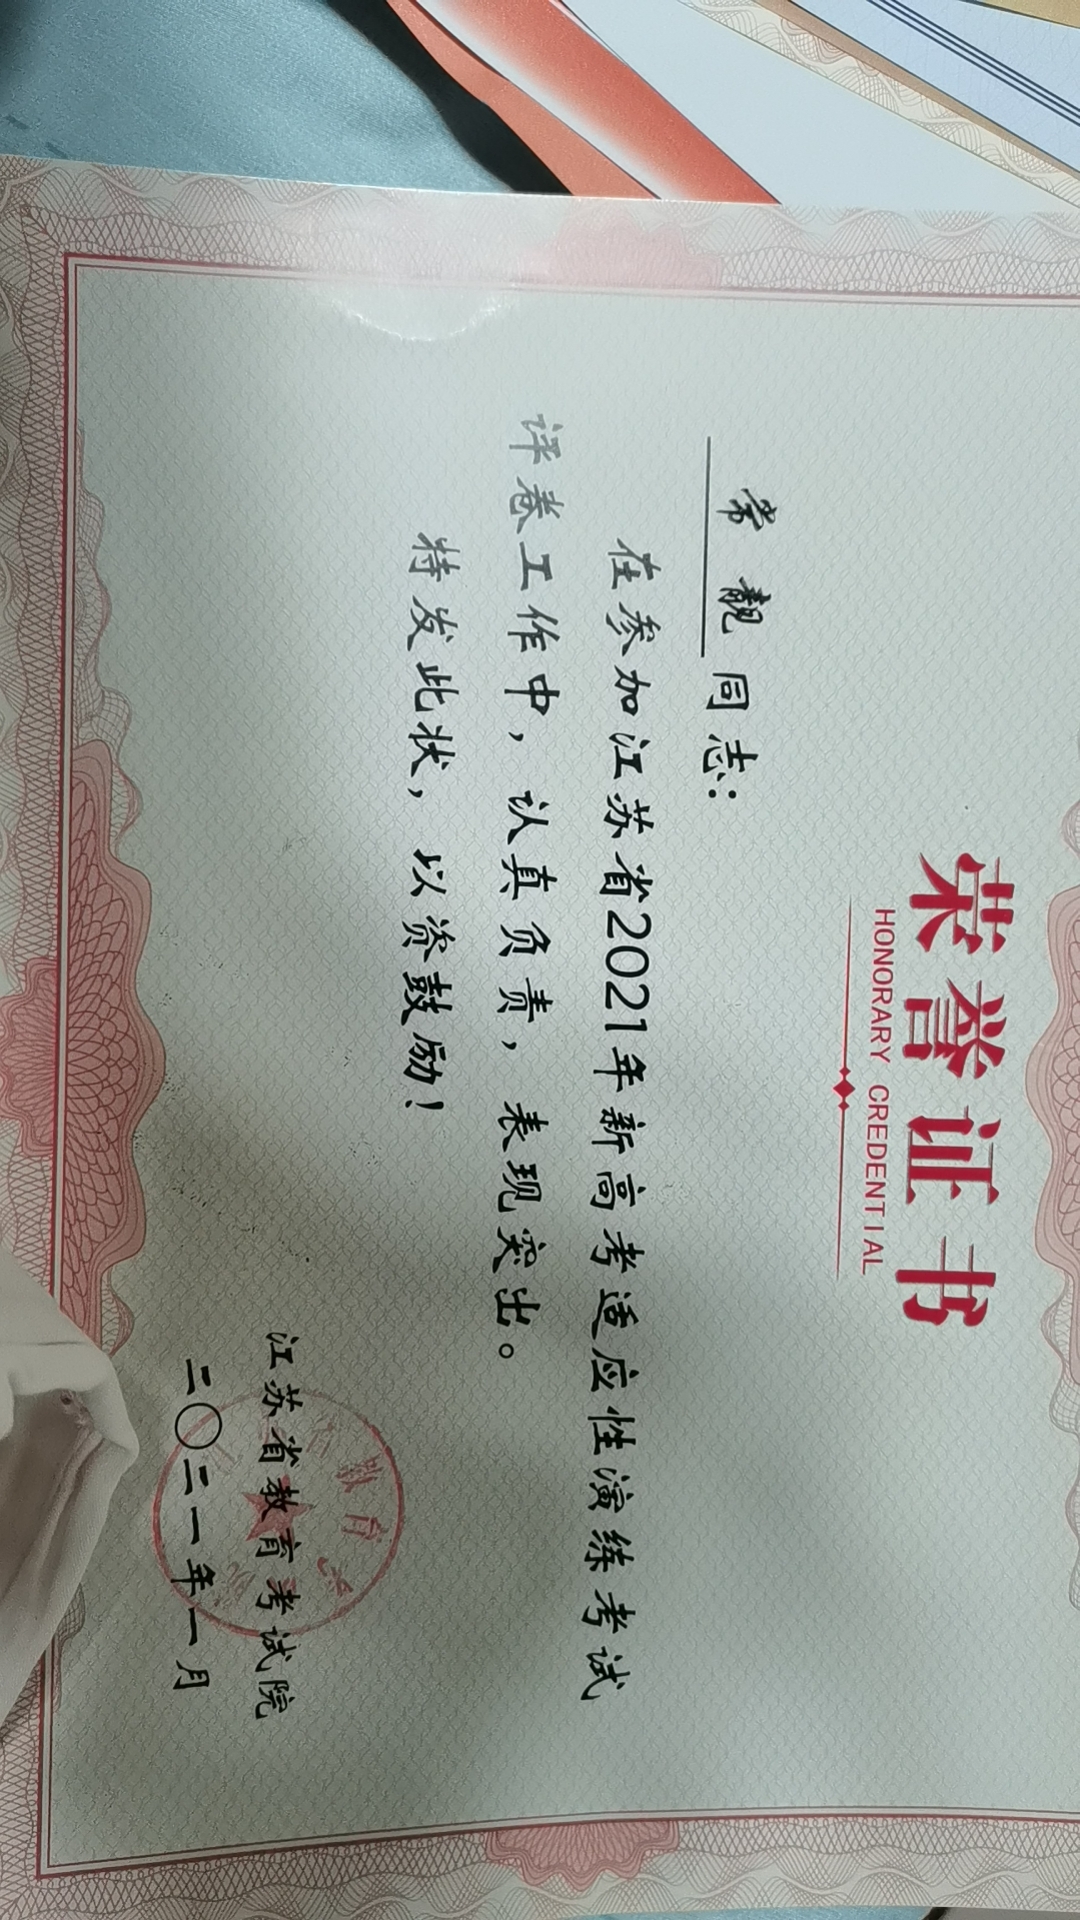 荣誉证书
HONORARY CREDENTIAL
常靓同志：
在参加江苏省2021年新高考适应性演练考试
评卷工作中，认真负责，表现突出。
特发此状，以资鼓励！
江苏省教育考试院
二〇二一年一月